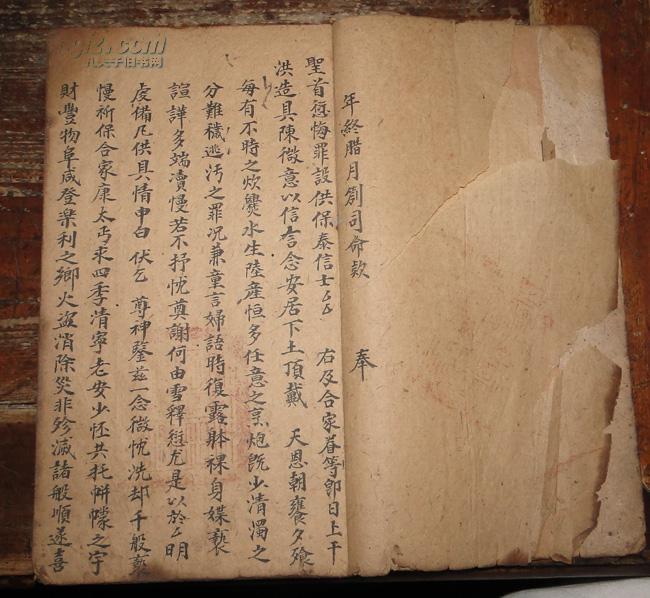 年終腊月劄司命欵
奉
聖首愆悔罪設供保泰信士厶厶 右及合家眷等即日上干
洪造具陳微意以信言念安居下土頂戴 天恩朝饔夕飱
每有不時之炊爨水生陸產恒多任意之烹炮既少清濁之
分難穢逃污之罪况兼童言婦語時復露體裸身媟褻
諠譁多端凟慢若不抒忱奠謝何由雪釋愆尤是以於厶明
虔備凡供具情申白 伏乞 尊神鑒兹一念微忱洗却千般褻
慢祈保合家康太丐求四季清寧老安少怀共托帡幪之宇
財豐物阜咸登樂利之鄉火盜消除災非殄滅諸般順遂喜